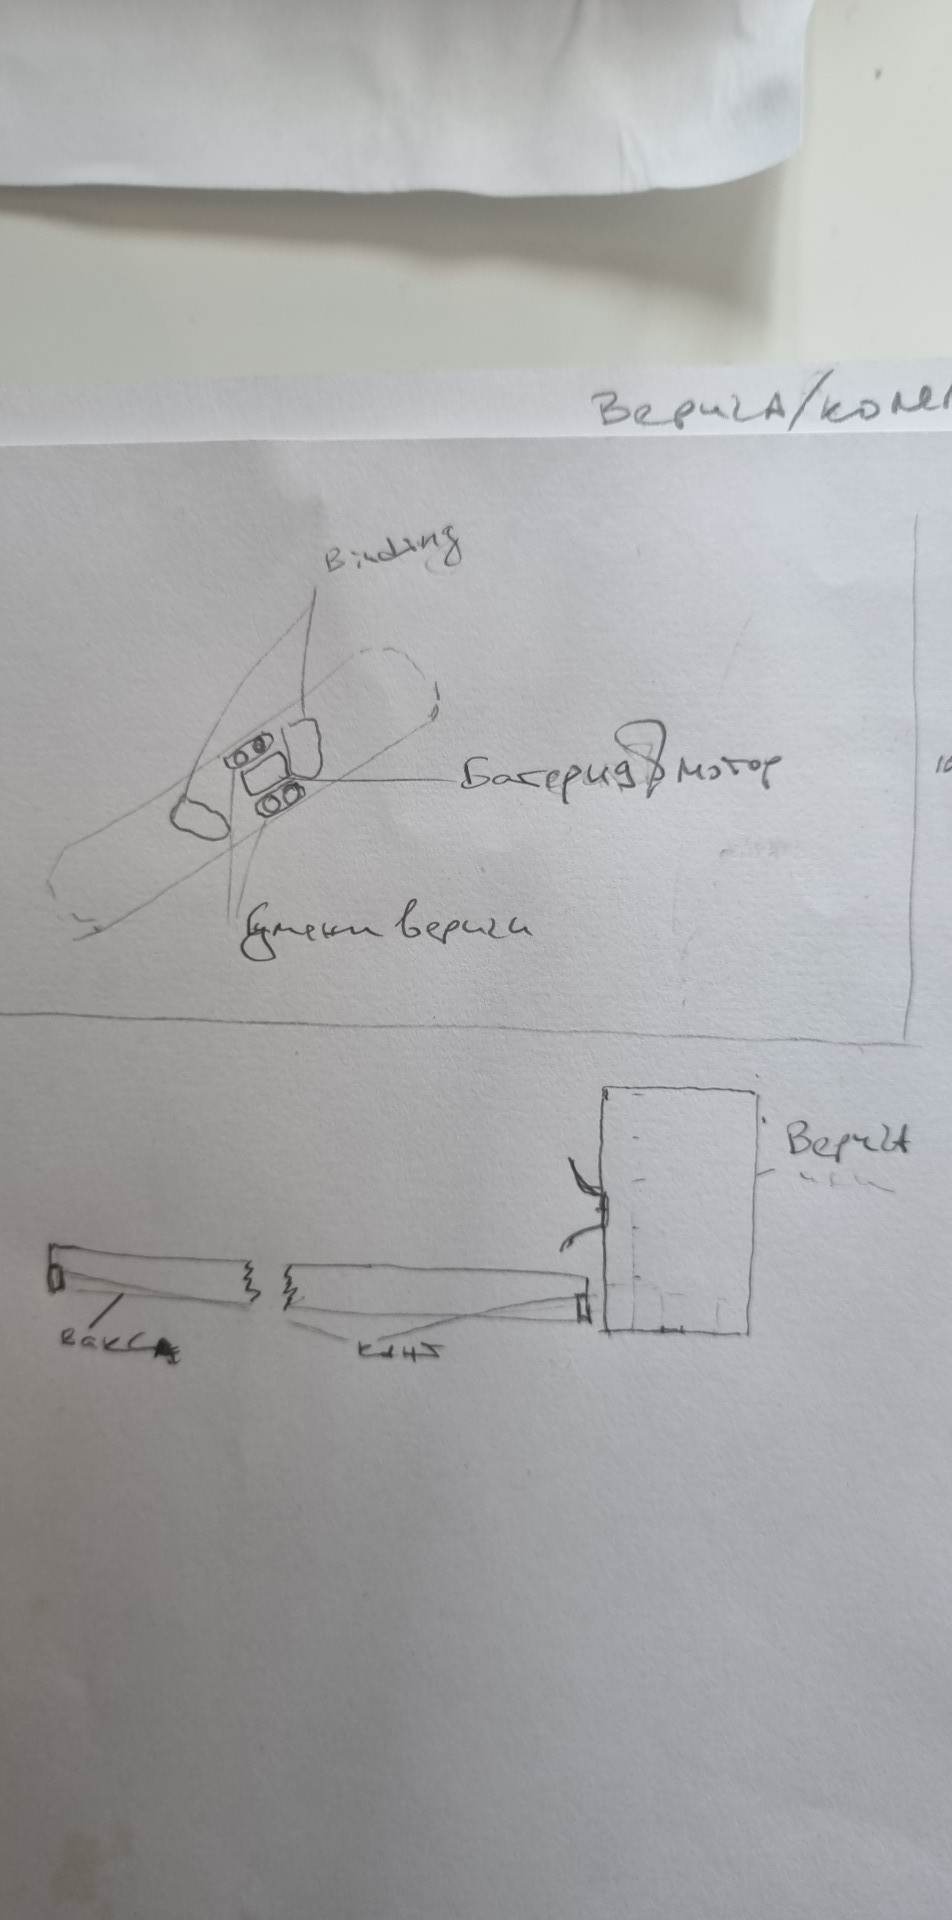 Верига/коле
Binding
Батерия мотор
10
Гумени вериги
Верига
вакса
кант